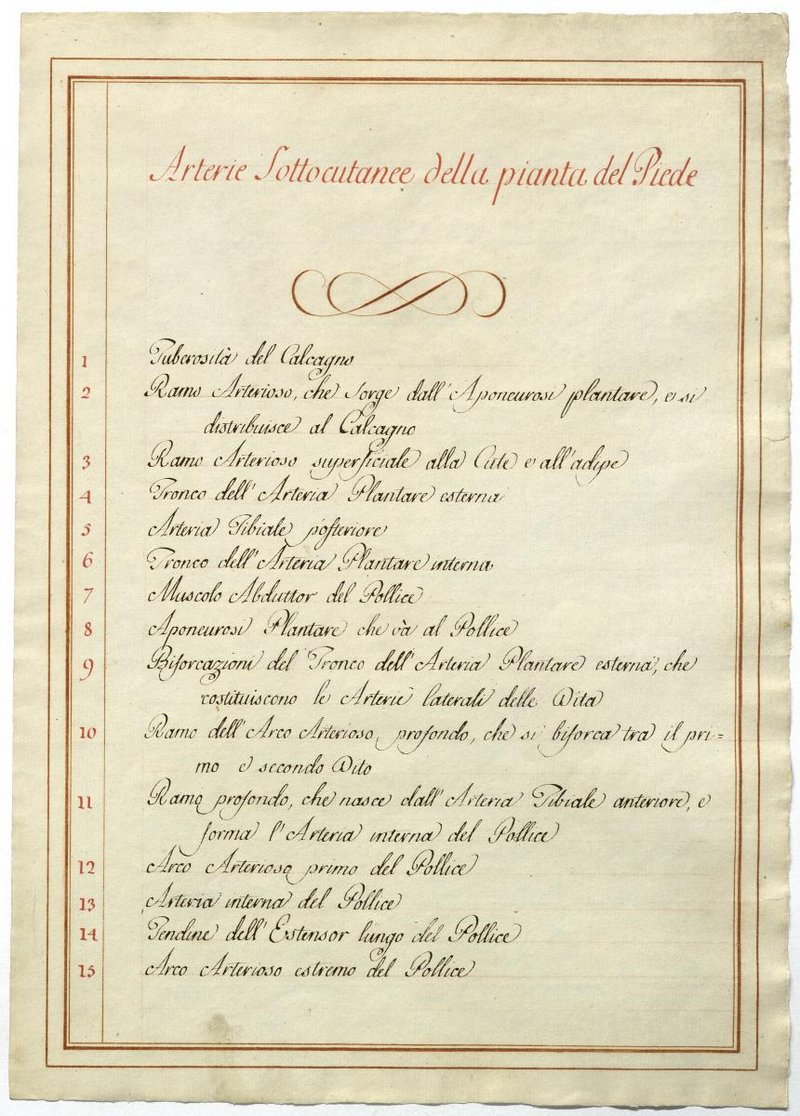 Arterie Sottocutanee della pianta del Piede
1 Tuberosità del Calcagno
2 Ramo Arterioso, che sorge dall'Aponeurosi plantare, e si
distribuisce al Calcagno
3 Ramo Arterioso superficiale alla Cute e all'adipe
4 Tronco dell'Arteria Plantare esterna
5 Arteria Tibiale posteriore
6 Tronco dell'Arteria Plantare interna
7 Muscolo Abduttor del Pollice
8 Aponeurosi Plantare che và al Pollice
9 Biforcazioni del Tronco dell'Arteria Plantare esterna, che
costituiscono le Arterie laterali delle Dita
10 Ramo dell'Arco Arterioso profondo, che si biforca tra il pri=
mo e secondo Dito
11 Ramo profondo, che nasce dall'Arteria Tibiale anteriore, e
forma l'Arteria interna del Pollice
12 Arco Arterioso primo del Pollice
13 Arteria interna del Pollice
14 Tendine dell'Estensor lungo del Pollice
15 Arco Arterioso estremo del Pollice